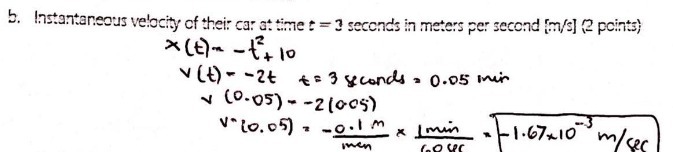 b. Instantaneous velocity of their car at time t = 3 seconds in meters per second [m/s] (2 points)
x(t) = -t² + 10
v(t) = -2t   t = 3 seconds = 0.05 min
v(0.05) = -2(0.05)
v(0.05) = -0.1 m/min × 1min/60 sec = -1.67×10⁻³ m/sec